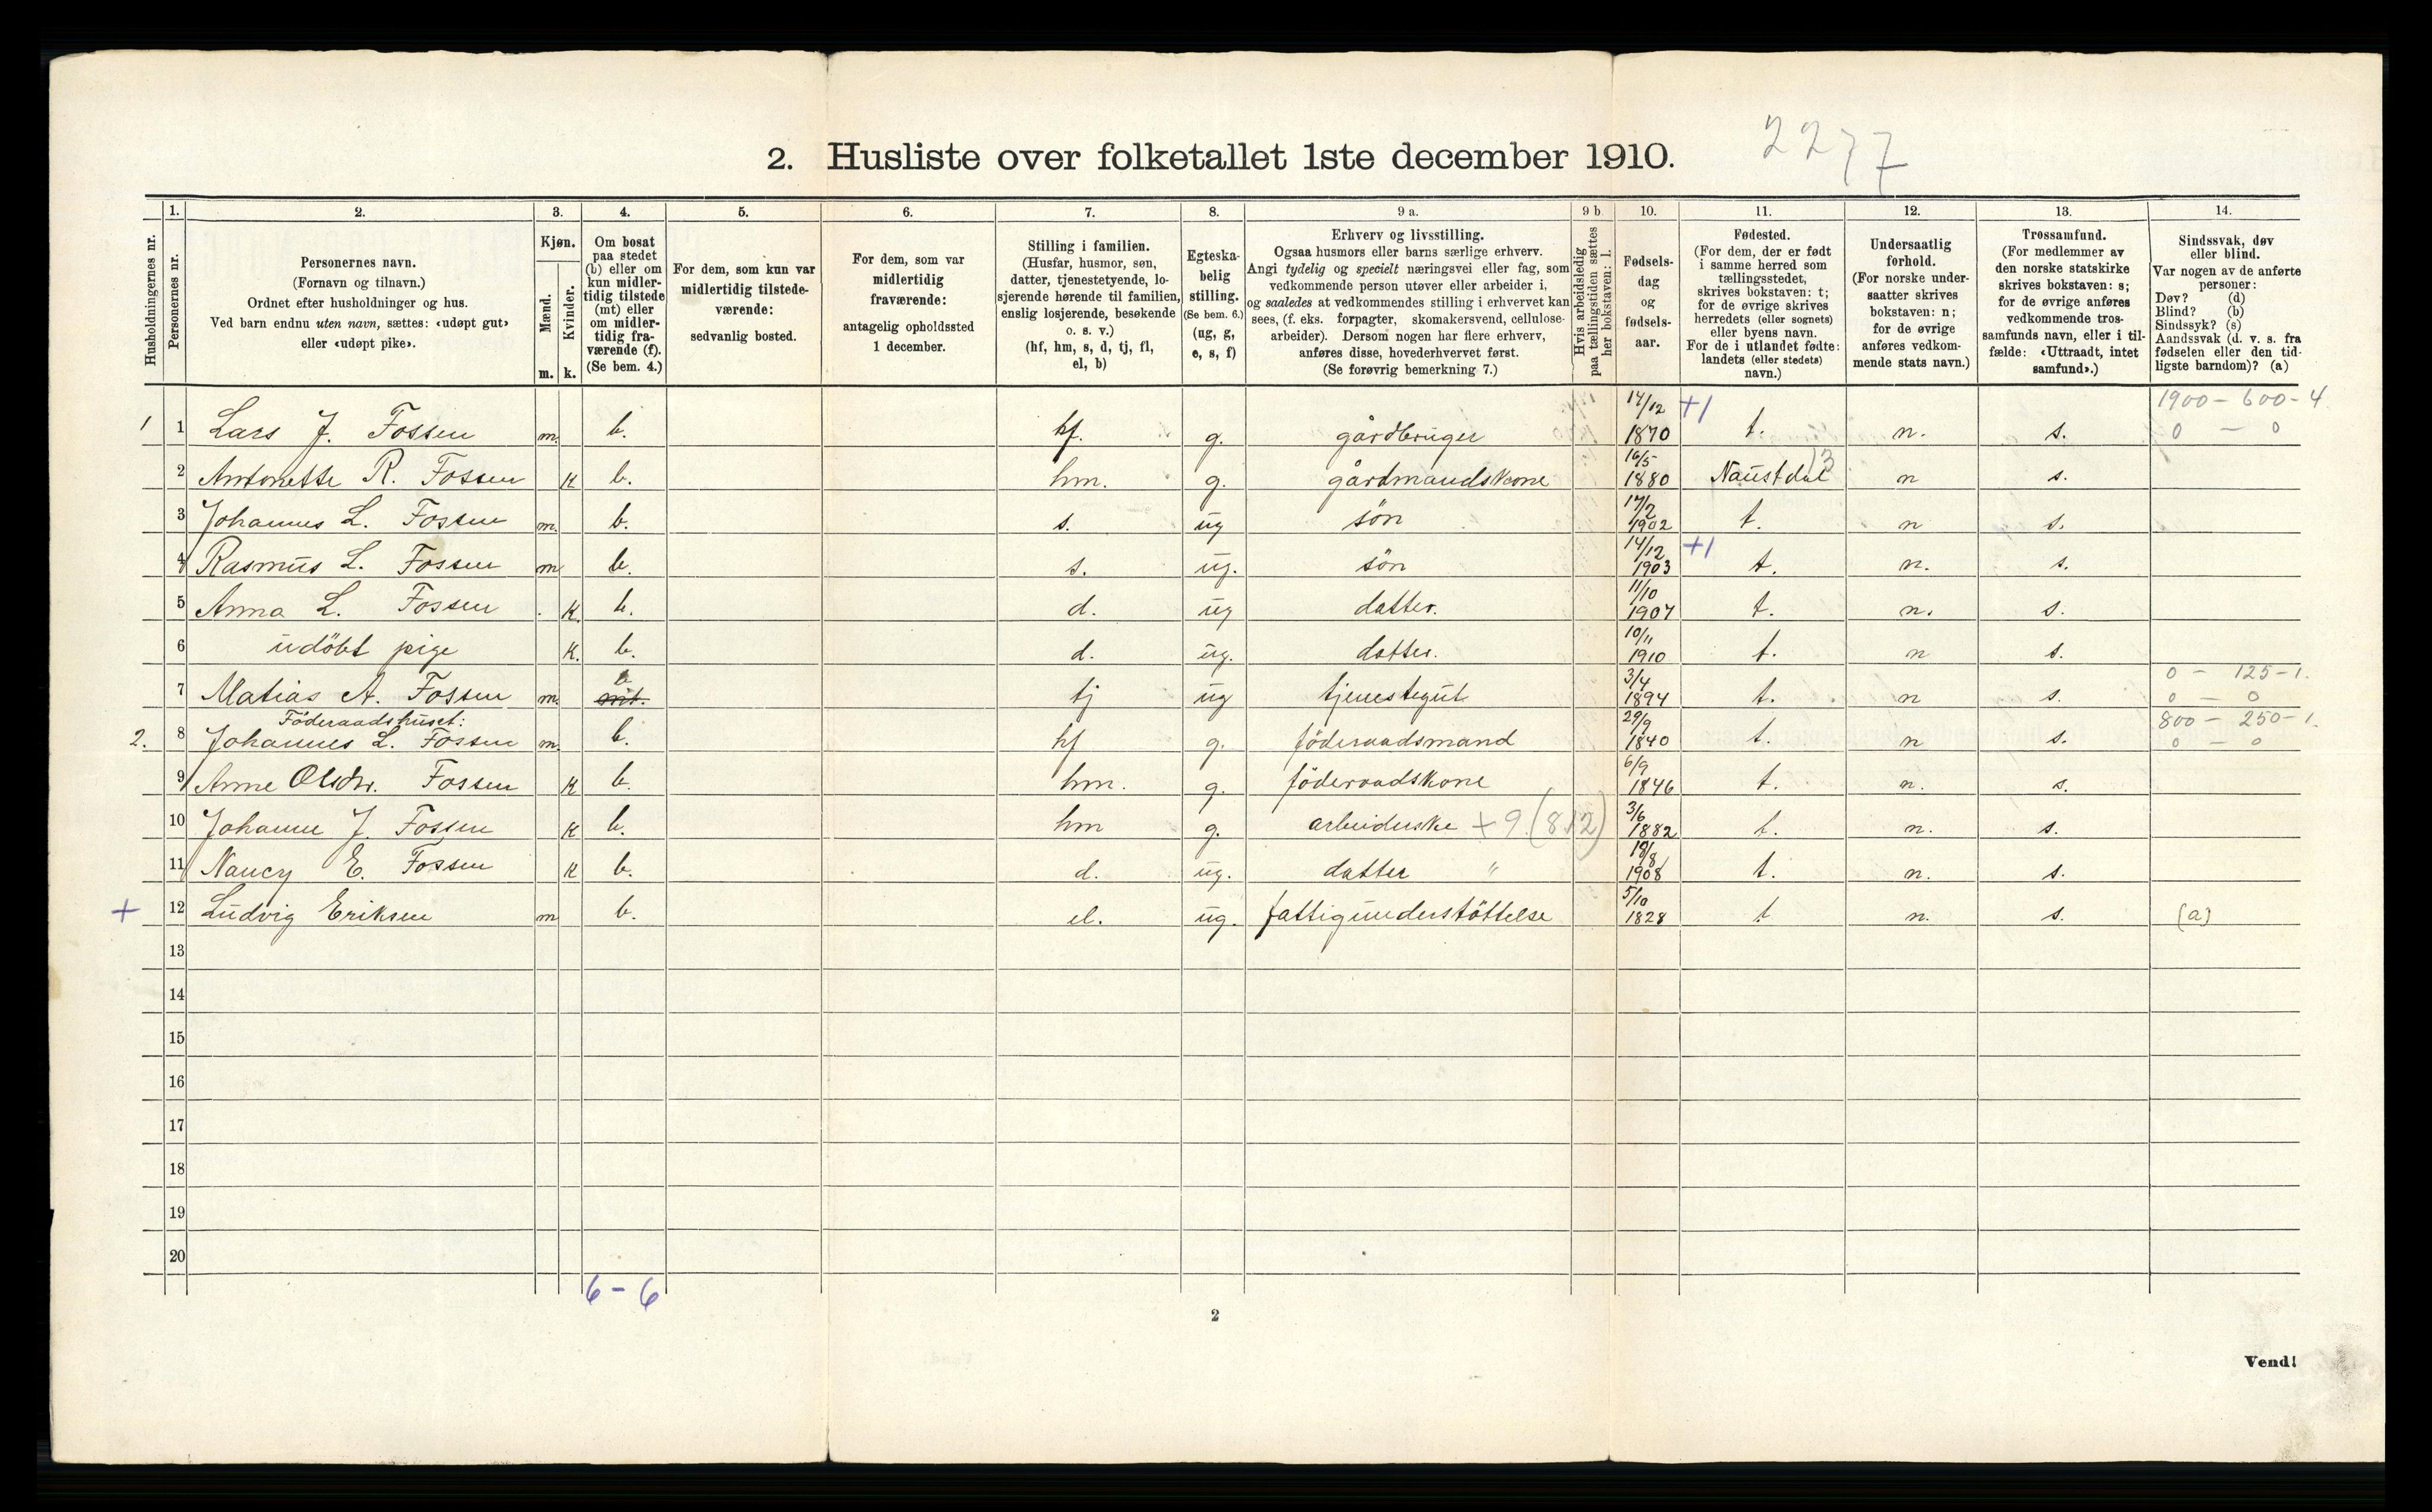 2277
2. Husliste over folketallet 1ste december 1910.
1. 2. 3. 4. 5. 6. 7. 8. 9 a. 9 b 10. 11. 12. 13. 14.
Husholdningernes nr.
Personernes nr.
Personernes navn.
(Fornavn og tilnavn.)
Ordnet efter husholdninger og hus.
Ved barn endnu uten navn, sættes: «udøpt gut»
eller «udøpt pike».
Kjøn.
Mænd.
Kvinder.
m. k.
Om bosat
paa stedet
(b) eller om
kun midler-
tidig tilstede
(mt) eller
om midler-
tidig fra-
værende (f).
(Se bem. 4.)
For dem, som kun var
midlertidig tilstede-
værende:
sedvanlig bosted.
For dem, som var
midlertidig
fraværende:
antagelig opholdssted
1 december.
Stilling i familien.
(Husfar, husmor, søn,
datter, tjenestetyende, lo-
sjerende hørende til familien,
enslig losjerende, besøkende
o. s. v.)
(hf, hm, s, d, tj, fl,
el, b)
Egteska-
belig
stilling.
(Se bem. 6.)
(ug, g,
e, s, f)
Erhverv og livsstilling.
Ogsaa husmors eller barns særlige erhverv.
Angi tydelig og specielt næringsvei eller fag, som
vedkommende person utøver eller arbeider i,
og saaledes at vedkommendes stilling i erhvervet kan
sees, (f. eks. forpagter, skomakersvend, cellulose-
arbeider). Dersom nogen har flere erhverv,
anføres disse, hovederhvervet først.
(Se forøvrig bemerkning 7.)
Hvis arbeidsledig
paa tællingstiden sættes
her bokstaven: l.
Fødsels-
dag
og
fødsels-
aar.
Fødested.
(For dem, der er født
i samme herred som
tællingsstedet,
skrives bokstaven: t;
for de øvrige skrives
herredets (eller sognets)
eller byens navn.
For de i utlandet fødte:
landets (eller stedets)
navn.)
Undersaatlig
forhold.
(For norske under-
saatter skrives
bokstaven: n;
for de øvrige
anføres vedkom-
mende stats navn.)
Trossamfund.
(For medlemmer av
den norske statskirke
skrives bokstaven: s;
for de øvrige anføres
vedkommende tros-
samfunds navn, eller i til-
fælde: «Uttraadt, intet
samfund».)
Sindssvak, døv
eller blind.
Var nogen av de anførte
personer:
Døv? (d)
Blind? (b)
Sindssyk? (s)
Aandssvak (d. v. s. fra
fødselen eller den tid-
ligste barndom)? (a)
1 1 Lars J. Fossen m. b. hf. g. gårdbruger 14/12 1870 +1 t. n. s. 1900 - 600 - 4 0 - 0
2 Antonette R. Fossen K b. hm. g. gårdmandskone 16/5 1880 Naustdal 13 n s.
3 Johannes L. Fossen m. b. s. ug søn 17/2 1902 t. n s.
4 Rasmus L. Fossen m b. s. ug. søn 14/12 1903 +1 t. n. s.
5 Anna L. Fossen K. b. d. ug datter. 11/10 1907 t. n. s.
6 udöbt pige K. b. d. ug. datter. 10/11 1910 t. n s.
7 Matias A. Fossen m. mt. b tj ug tjenestegut 3/4 1894 t. n s. 0 - 125 - 1. 0 - 0
Föderaadshuset:
2. 8 Johannes L. Fossen m. b. hf g. föderaadsmand 29/9 1840 t. n s. 800 - 250 - 1. 0 - 0
9 Anne Olsdtr. Fossen K b. hm. g. föderaadskone 6/9 1846 t. n. s.
10 Johanne J. Fossen K b. hm g. arbeiderske + 9. (812) 3/6 1882 t. n. s.
11 Nancy E. Fossen K b. d. ug. datter " 18/8 1908 t. n. s.
+ 12 Ludvig Eriksen m b. el. ug. fattigunderstöttelse 5/10 1828 t n. s. (a)
13
14
15
16
17
18
19
20
6 - 6
2
Vend!